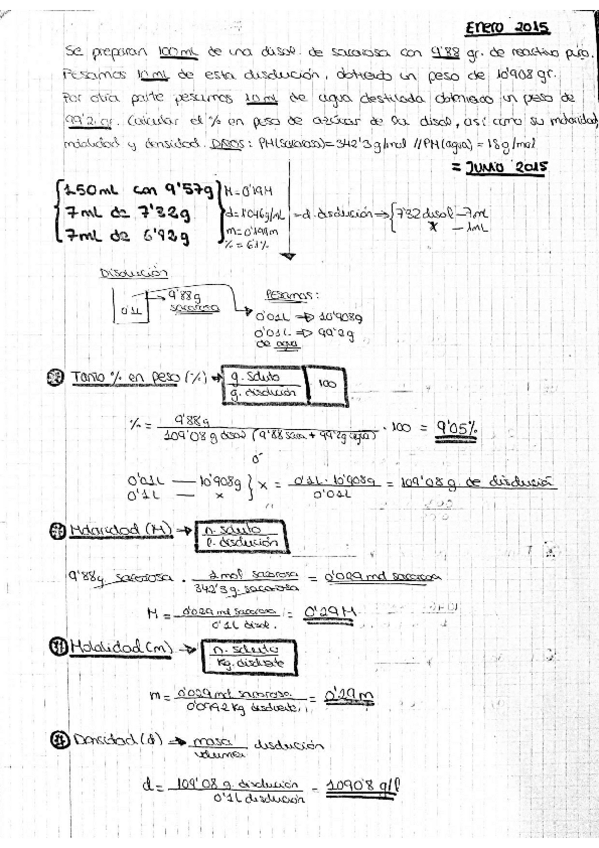 ENERO 2015
Se preparan 100 mL de una disol. de sacarosa con 9'88 gr. de reactivo puro.
Pesamos 10 mL de esta disolución, obteniendo un peso de 10'908 gr.
Por otra parte pesamos 10 mL de agua destilada obteniendo un peso de
99'2 gr. Calcular el % en peso de azúcar de la disol, así como su molaridad,
molalidad y densidad. DATOS: PM(sacarosa)=342'3g/mol // PM(agua)=18g/mol
= JUNIO 2015
150mL con 9'57g
7mL de 7'32g
7mL de 6'92g
M=0'19M
d=1046g/mL
m=0'191m
%=6'1%
→ d. disolución ⇒ 7'32 disol — 7mL
x — 1mL
Disolución
0'1L
9'88g
sacarosa
Pesamos:
0'01L ⇒ 10'908g
0'01L ⇒ 99'2g
de agua
Tanto % en peso (%) → g. soluto / g. disolución 100
% = 9'88g / 109'08 g disol (9'88 saca + 99'2g agua) · 100 = 9'05%
ó
0'01L — 10'908g
0'1L — x
x = 0'1L · 10'908g / 0'01L = 109'08 g de disolución
Molaridad (M) → n. soluto / l. disolución
9'88g sacarosa · 1 mol sacarosa / 342'3 g. sacarosa = 0'029 mol sacarosa
M = 0'029 mol sacarosa / 0'1L disol. = 0'29 M
Molalidad (m) → n. soluto / Kg. disolvente
m = 0'029 mol sacarosa / 0'0992 Kg disolvente = 0'29 m
Densidad (d) → masa / volumen disolución
d = 109'08 g. disolución / 0'1L disolución = 1090'8 g/l